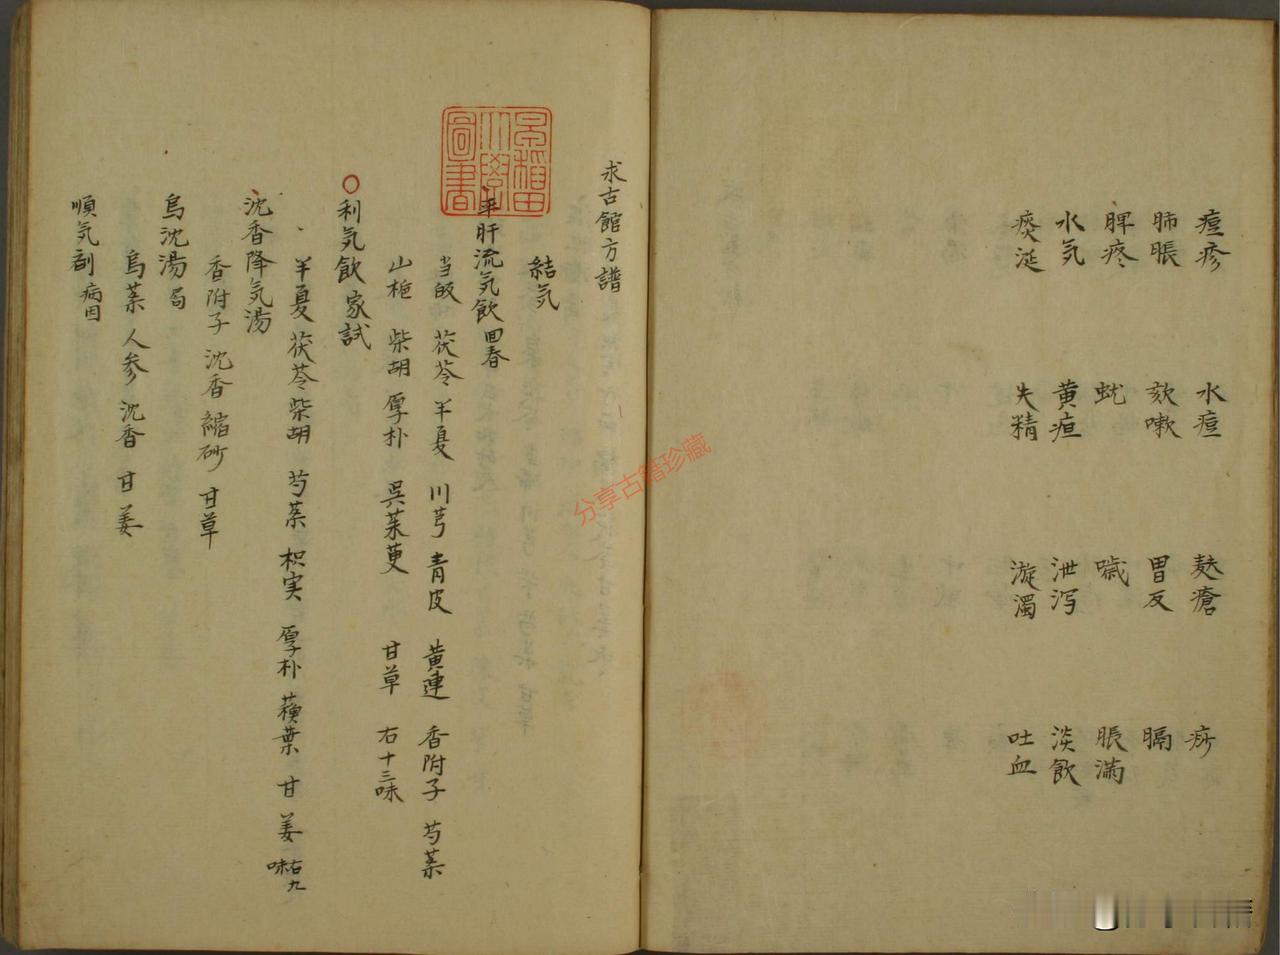 痘疹 水痘 麸瘡 痧
肺脹 欬嗽 胃反 膈
脾疼 蚘 噦 脹滿
水気 黄疸 泄泻 淡飲
痰涎 失精 漩濁 吐血
求古館方譜
結気
平肝流気飲 回春
当皈 茯苓 半夏 川芎 青皮 黄連 香附子 芍薬
山梔 柴胡 厚朴 呉茱萸 甘草 右十三味
〇利気飲 家試
半夏 茯苓 柴胡 芍薬 枳実 厚朴 蘓葉 甘 姜 右九味
沈香降気湯
香附子 沈香 縮砂 甘草
烏沈湯 局
烏薬 人参 沈香 甘 姜
順気剤 病因
早稻田
大學
圖書
分享古籍珍藏